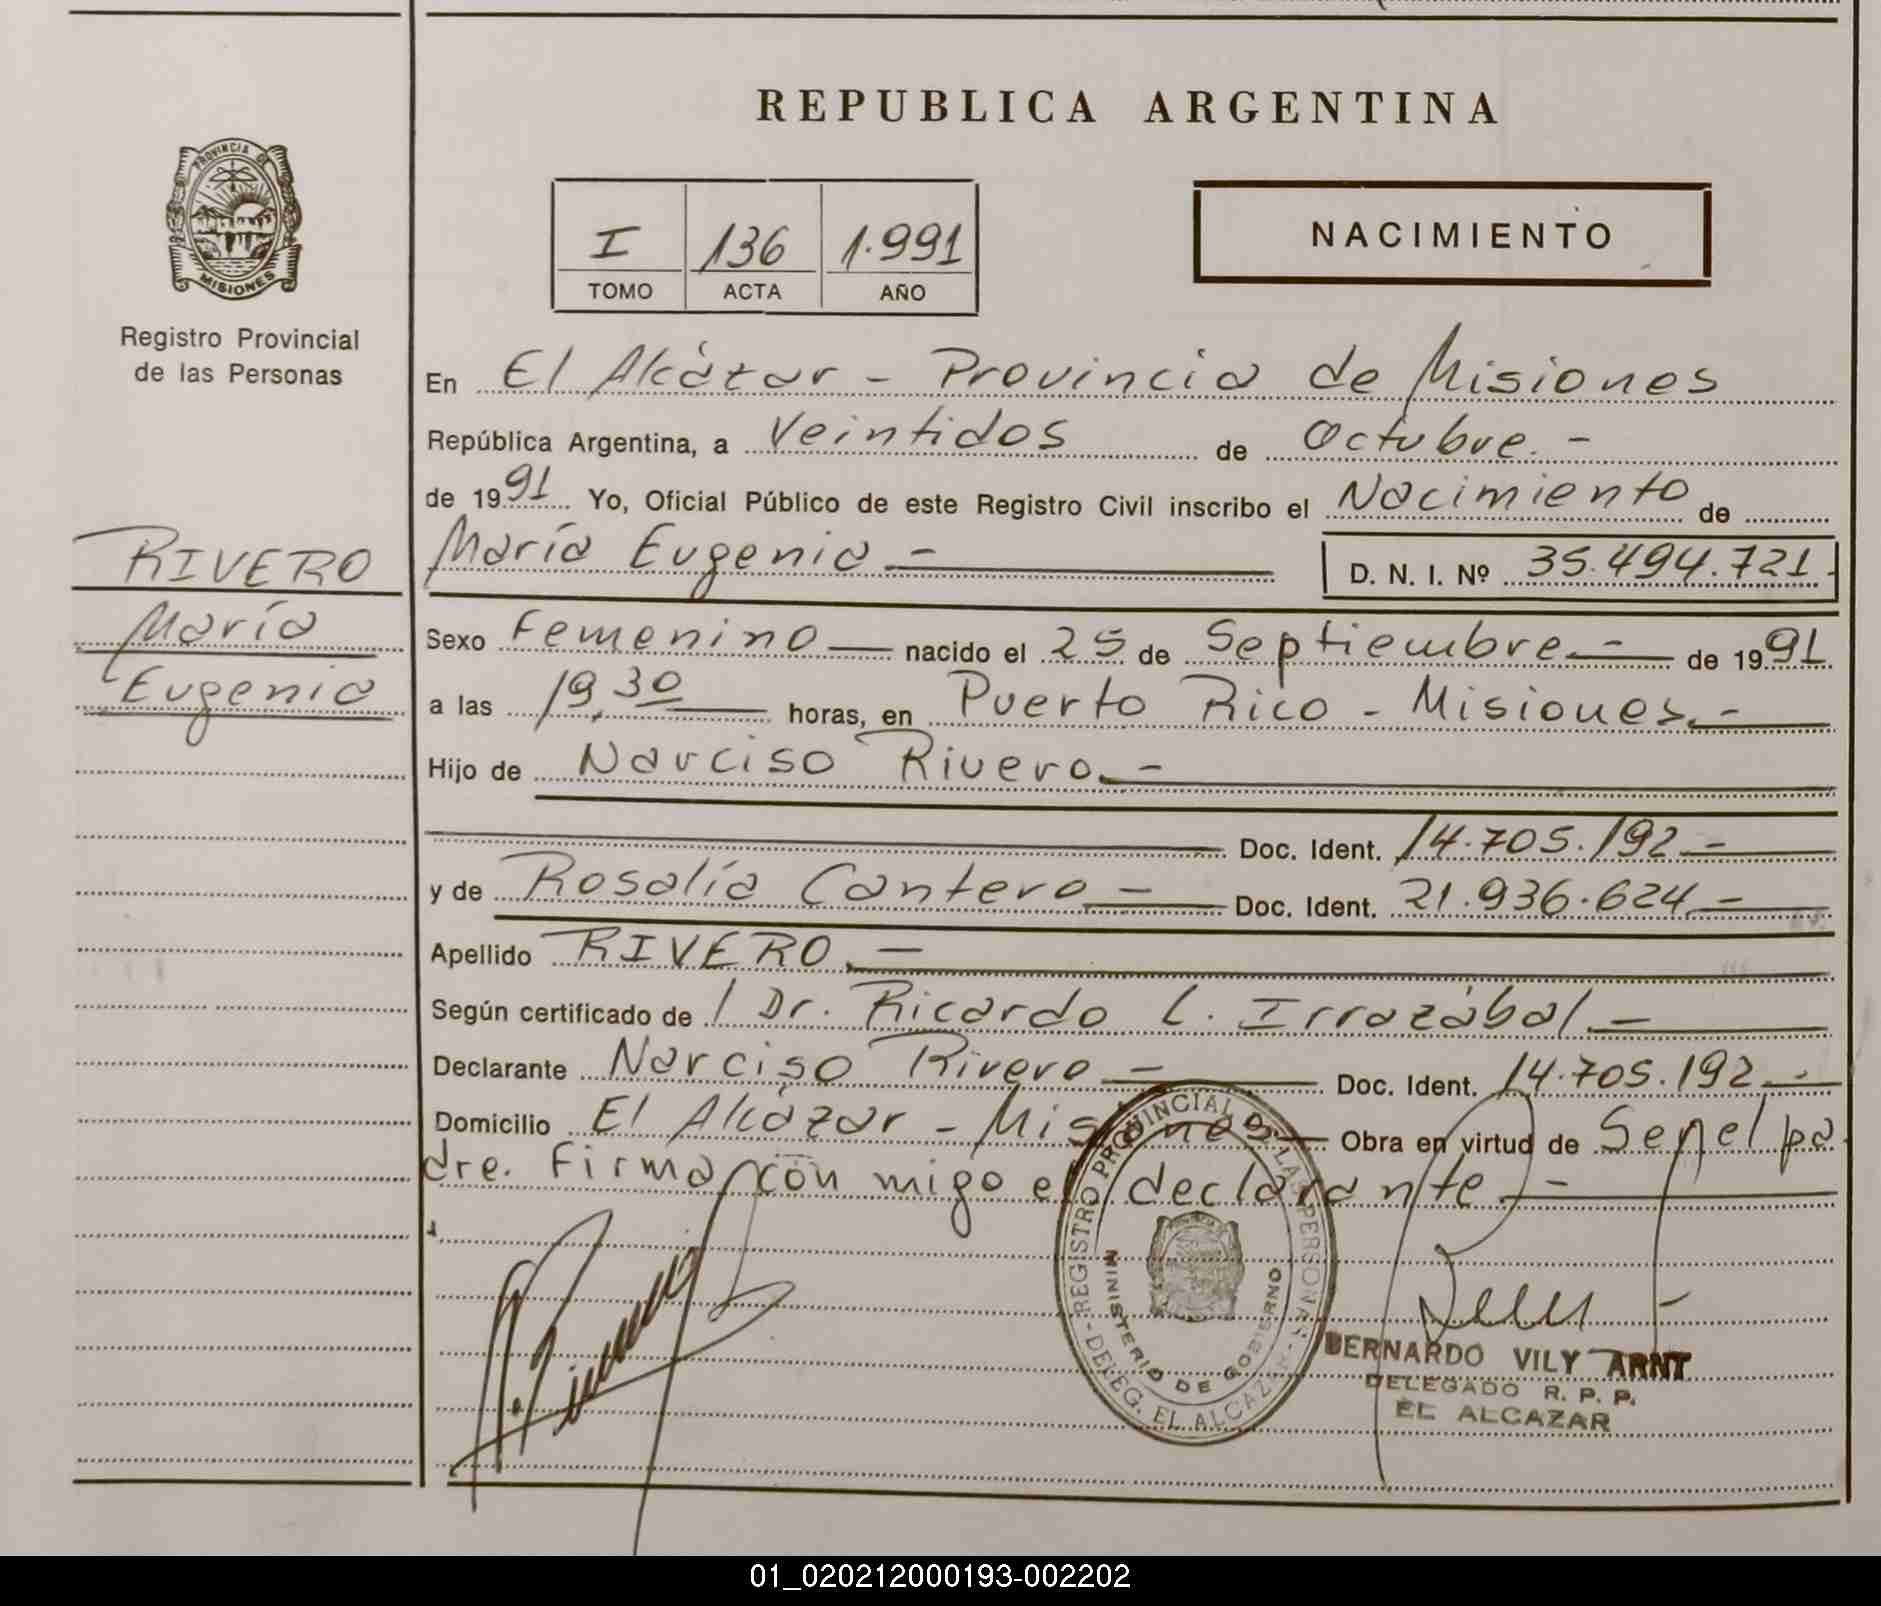 REPUBLICA ARGENTINA
PROVINCIA DE
MISIONES
Registro Provincial
de las Personas
I 136 1.991
TOMO ACTA AÑO
NACIMIENTO
En El Alcázar - Provincia de Misiones
República Argentina, a Veintidos de Octubre.-
de 1991 Yo, Oficial Público de este Registro Civil inscribo el Nacimiento de
RIVERO
María
Eugenia
María Eugenia - D. N. I. Nº 35.494.721.
Sexo Femenino - nacido el 25 de Septiembre.- de 1991.
a las 19,30 horas, en Puerto Rico - Misiones.-
Hijo de Narciso Rivero.-
Doc. Ident. 14.705.192.-
y de Rosalía Cantero.- Doc. Ident. 21.936.624.-
Apellido RIVERO.-
Según certificado de / Dr. Ricardo L. Irrazábal.-
Declarante Narciso Rivero.- Doc. Ident. 14.705.192.-
Domicilio El Alcázar - Misiones.- Obra en virtud de Ser el pa
dre. Firma con migo el declarante.-
REGISTRO PROVINCIAL DE LAS PERSONAS
MINISTERIO DE GOBIERNO
- DELEG. EL ALCAZAR -
BERNARDO VILY ARNT
DELEGADO R. P. P.
EL ALCAZAR
01_020212000193-002202